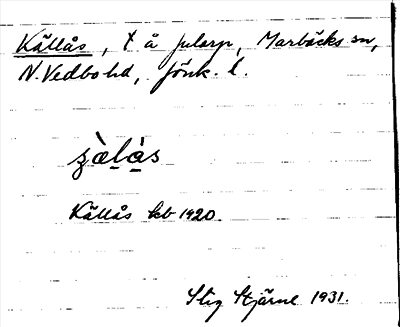 Källås, t å Jularp, Marbäcks sn,
N. Vedbo hd, Jönk. l.
Källås kb 1920
Stig Stjärne 1931.